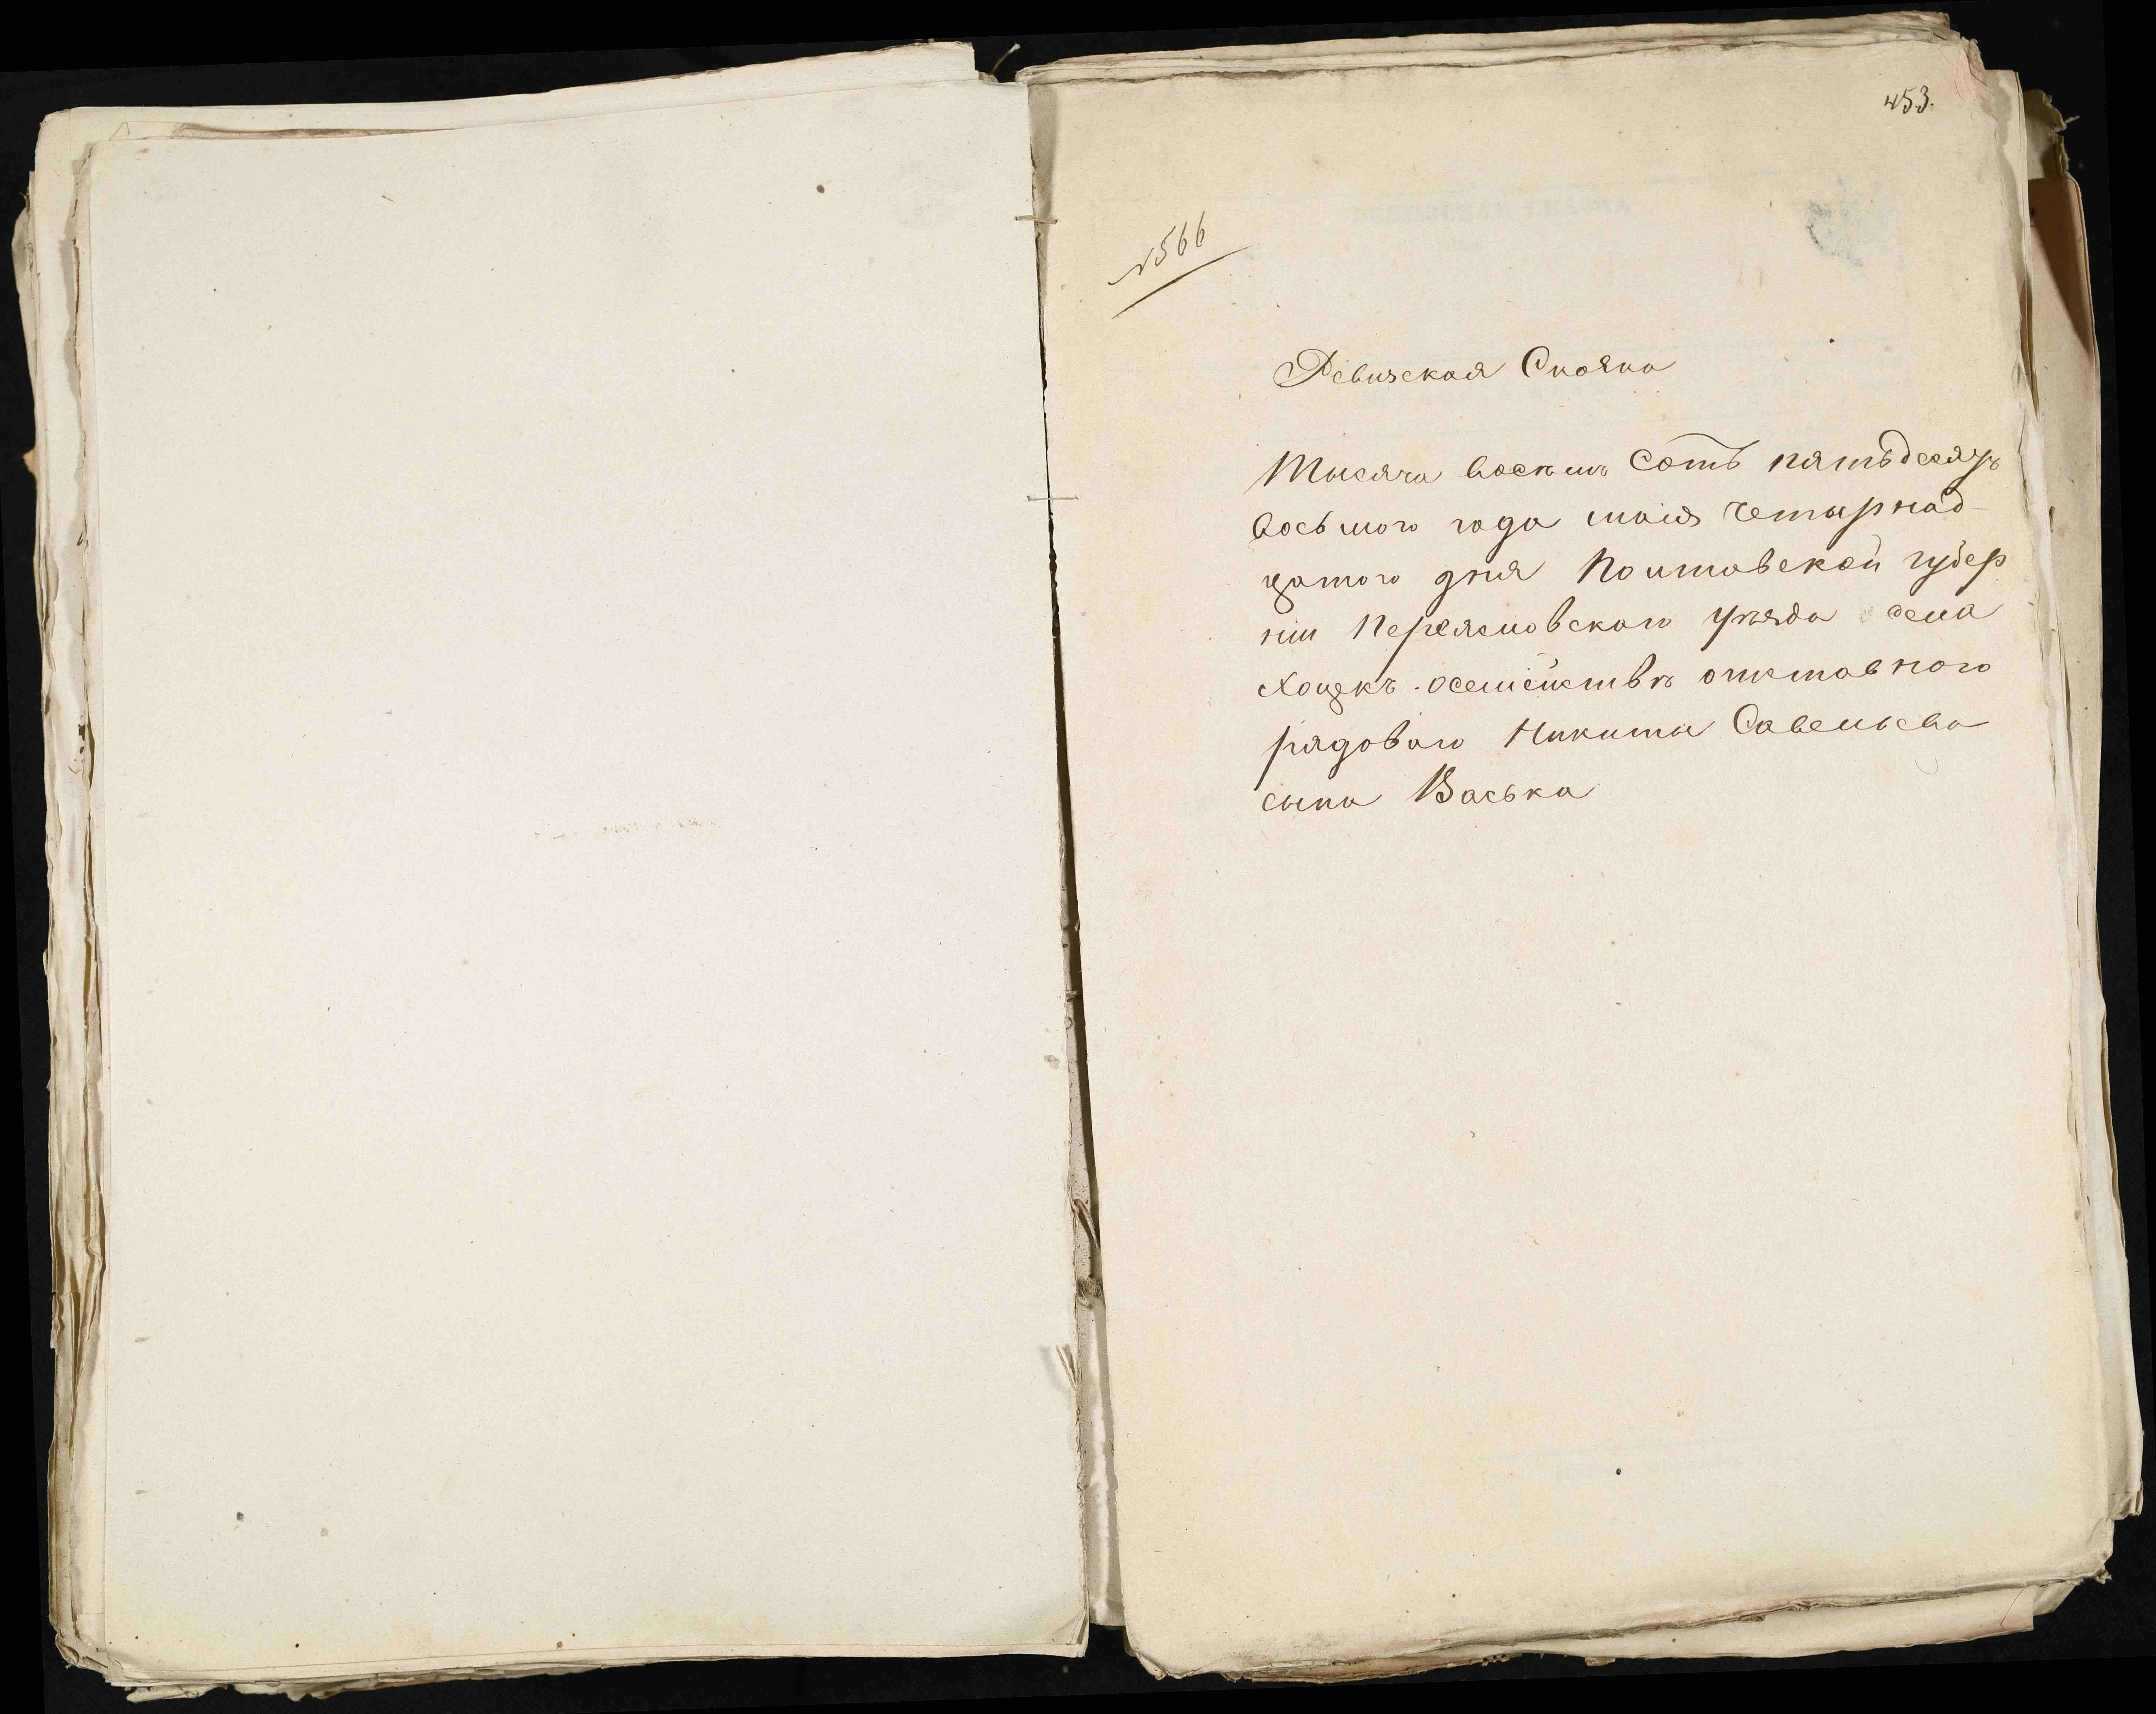 453.
№566
Ревизская Скаска
Тысяча восемъ Сотъ пятьдесятъ
восьмого года маія четырнад-
цатого дня Полтавской губер
ніи Переяславского уѣзда села
Хоцекъ осемействѣ отставного
рядового Никиты Савельева
сына Васька